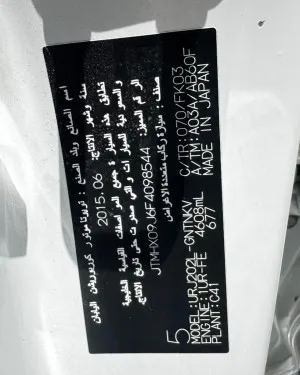 اسم الصانع وبلد الصنع : تويوتا موتور كوربوريشن اليابان
سنة وشهر الانتاج: 2015.06
تطابق هذه السيارة جميع المواصفات القياسية الخليجية
والسعودية للسيارات والتي صدرت حتى تاريخ الانتاج.
الرقم المميز: JTMHX09J6F4098544
صنف: سيارة ركاب متعددة الأغراض
5
MODEL:URJ202L-GNTNKV C/TR:070/FK03
ENGINE:1UR-FE 4608mL A/TM:A03A/AB60F
PLANT:C41 677 MADE IN JAPAN